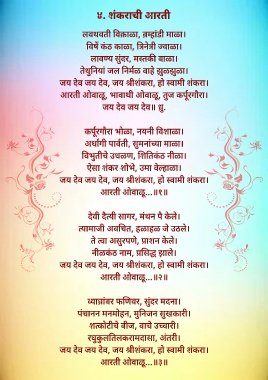 ४. शंकराची आरती
लवथवती विक्राळा, ब्रम्हांडी माळा।
विषें कंठ काळा, त्रिनेत्री ज्वाळा।
लावण्य सुंदर, मस्तकी बाळा।
तेथुनियां जल निर्मळ वाहे झुळझुळा।
जय देव जय देव, जय श्रीशंकरा, हो स्वामी शंकरा।
आरती ओवाळू, भावार्थी ओवाळू, तुज कर्पूरगौरा।
जय देव जय देव॥ धृ.
कर्पूरगौरा भोळा, नयनी विशाळा।
अर्धांगी पार्वती, सुमनांच्या माळा।
विभुतीचे उधळण, शितिकंठ नीळा।
ऐसा शंकर शोभे, उमा वेल्हाळा।
जय देव जय देव, जय श्रीशंकरा, हो स्वामी शंकरा।
आरती ओवाळू...॥१॥
देवी दैत्यी सागर, मंथन पै केले।
त्यामाजी अवचित, हळाहळ जे उठले।
ते त्वा असुरपणे, प्राशन केले।
नीळकंठ नाम, प्रसिद्ध झाले।
जय देव जय देव, जय श्रीशंकरा, हो स्वामी शंकरा।
आरती ओवाळू...॥२॥
व्याघ्रांबर फणिवर, सुंदर मदना।
पंचानन मनमोहन, मुनिजन सुखकारी।
शतकोटीचे बीज, वाचे उच्चारी।
रघुकुलतिलकरामदासा, अंतरी।
जय देव जय देव, जय श्रीशंकरा, हो स्वामी शंकरा।
आरती ओवाळू...॥३॥